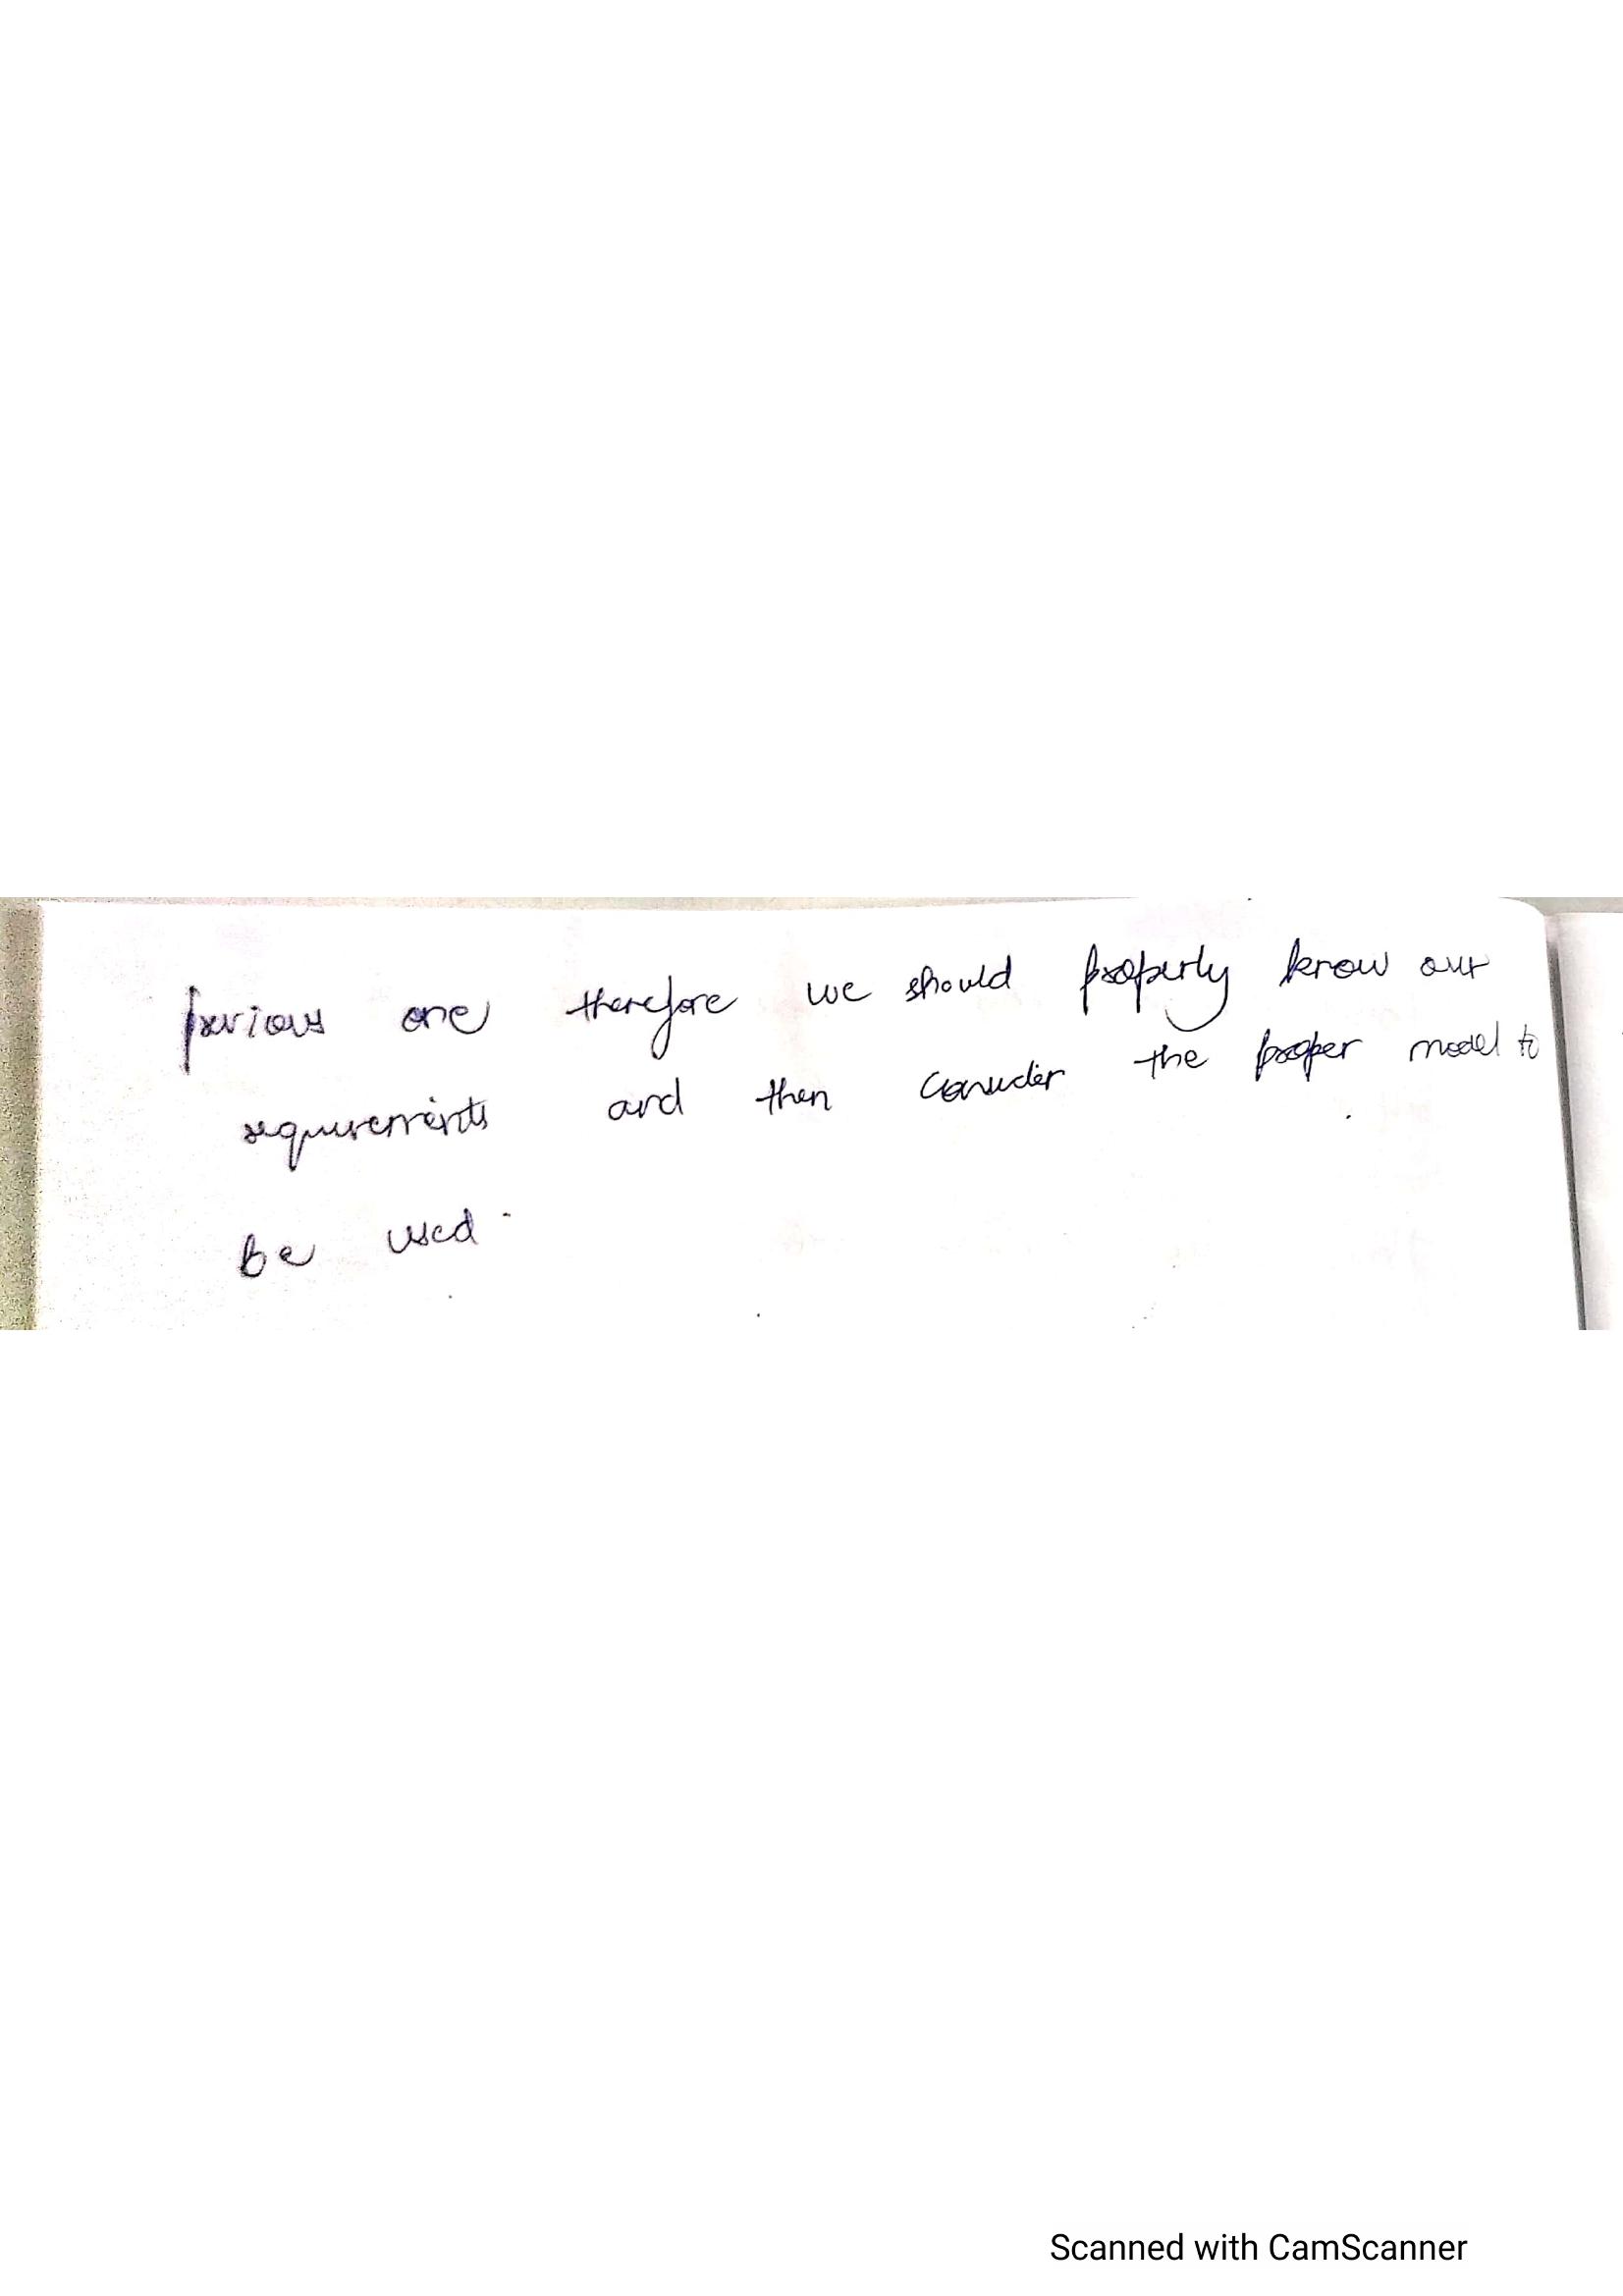 previous one therefore we should properly know our
requirements and then consider the proper model to
be used.
Scanned with CamScanner